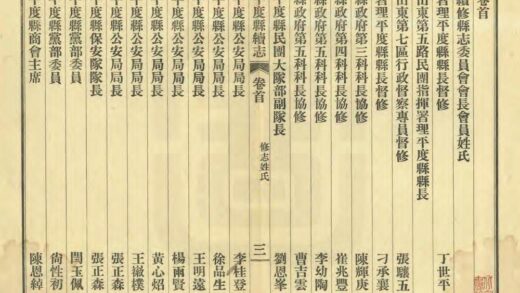 卷首
續修縣志委員會會長會員姓氏
署理平度縣縣長督修 丁世平
山東第五路民團指揮署理平度縣縣長
山東第七區行政督察專員督修 張驤五
署理平度縣縣長督修 刁承襄
縣政府第三科科長協修 陳輝庚
縣政府第四科科長協修 崔兆豐
縣政府第五科科長協修 李幼陶
縣政府第五科科長協修 曹吉雲
平度縣民團大隊部副隊長 劉恩峯
平度縣續志 卷首 修志姓氏 三
平度縣公安局局長 李桂登
平度縣公安局局長 徐品生
平度縣公安局局長 王明遠
平度縣公安局局長 楊雨賢
平度縣公安局局長 黃心炤
平度縣公安局局長 王徽樸
平度縣公安局局長 張正森
平度縣保安隊隊長 張正森
平度縣黨部委員 閆玉佩
平度縣黨部委員 尙性初
平度縣商會主席 陳恩綽